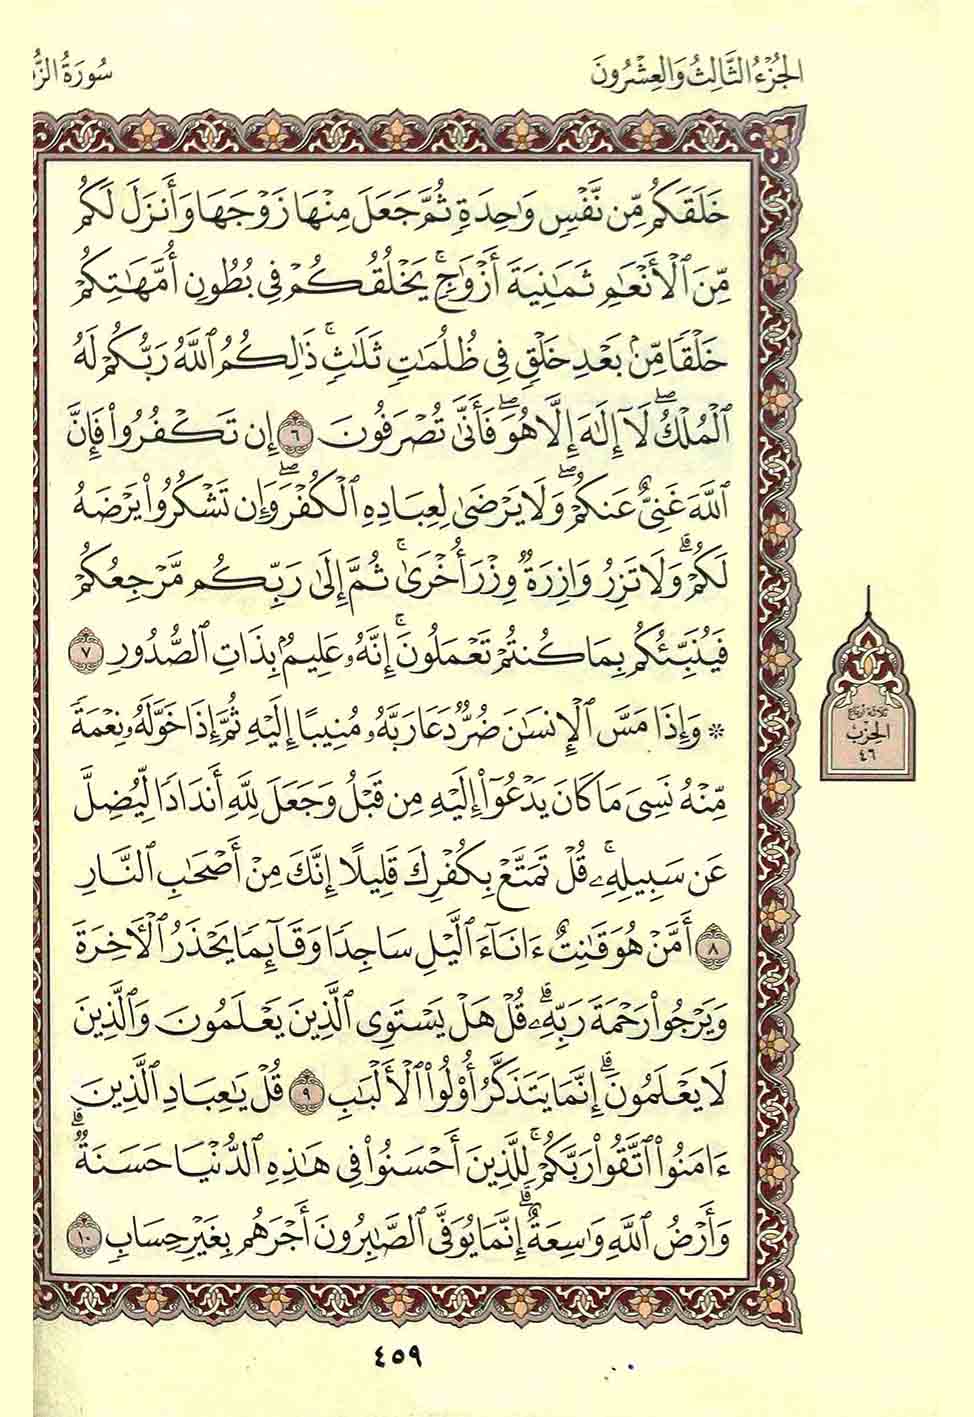 الجُزْءُ الثَّالِثُ وَالعِشْرُونَ
سُورَةُ الزُّ
خَلَقَكُم مِّن نَّفْسٍ وَٰحِدَةٍ ثُمَّ جَعَلَ مِنْهَا زَوْجَهَا وَأَنزَلَ لَكُم
مِّنَ ٱلْأَنْعَٰمِ ثَمَٰنِيَةَ أَزْوَٰجٍۚ يَخْلُقُكُمْ فِى بُطُونِ أُمَّهَٰتِكُمْ
خَلْقًا مِّنۢ بَعْدِ خَلْقٍ فِى ظُلُمَٰتٍ ثَلَٰثٍۚ ذَٰلِكُمُ ٱللَّهُ رَبُّكُمْ لَهُ
ٱلْمُلْكُۖ لَآ إِلَٰهَ إِلَّا هُوَۖ فَأَنَّىٰ تُصْرَفُونَ ٦ إِن تَكْفُرُوا۟ فَإِنَّ
ٱللَّهَ غَنِىٌّ عَنكُمْۖ وَلَا يَرْضَىٰ لِعِبَادِهِ ٱلْكُفْرَۖ وَإِن تَشْكُرُوا۟ يَرْضَهُ
لَكُمْۗ وَلَا تَزِرُ وَازِرَةٌ وِزْرَ أُخْرَىٰۚ ثُمَّ إِلَىٰ رَبِّكُم مَّرْجِعُكُمْ
فَيُنَبِّئُكُم بِمَا كُنتُمْ تَعْمَلُونَۚ إِنَّهُۥ عَلِيمٌۢ بِذَاتِ ٱلصُّدُورِ ٧
۞ وَإِذَا مَسَّ ٱلْإِنسَٰنَ ضُرٌّ دَعَا رَبَّهُۥ مُنِيبًا إِلَيْهِ ثُمَّ إِذَا خَوَّلَهُۥ نِعْمَةً
مِّنْهُ نَسِىَ مَا كَانَ يَدْعُوٓا۟ إِلَيْهِ مِن قَبْلُ وَجَعَلَ لِلَّهِ أَندَادًا لِّيُضِلَّ
عَن سَبِيلِهِۦۚ قُلْ تَمَتَّعْ بِكُفْرِكَ قَلِيلًا إِنَّكَ مِنْ أَصْحَٰبِ ٱلنَّارِ
٨ أَمَّنْ هُوَ قَٰنِتٌ ءَانَآءَ ٱلَّيْلِ سَاجِدًا وَقَآئِمًا يَحْذَرُ ٱلْءَاخِرَةَ
وَيَرْجُوا۟ رَحْمَةَ رَبِّهِۦۗ قُلْ هَلْ يَسْتَوِى ٱلَّذِينَ يَعْلَمُونَ وَٱلَّذِينَ
لَا يَعْلَمُونَۗ إِنَّمَا يَتَذَكَّرُ أُو۟لُوا۟ ٱلْأَلْبَٰبِ ٩ قُلْ يَٰعِبَادِ ٱلَّذِينَ
ءَامَنُوا۟ ٱتَّقُوا۟ رَبَّكُمْۚ لِلَّذِينَ أَحْسَنُوا۟ فِى هَٰذِهِ ٱلدُّنْيَا حَسَنَةٌۗ
وَأَرْضُ ٱللَّهِ وَٰسِعَةٌۗ إِنَّمَا يُوَفَّى ٱلصَّٰبِرُونَ أَجْرَهُم بِغَيْرِ حِسَابٍ ١٠
ثلاثة أرباع
الحِزْب
٤٦
٤٥٩